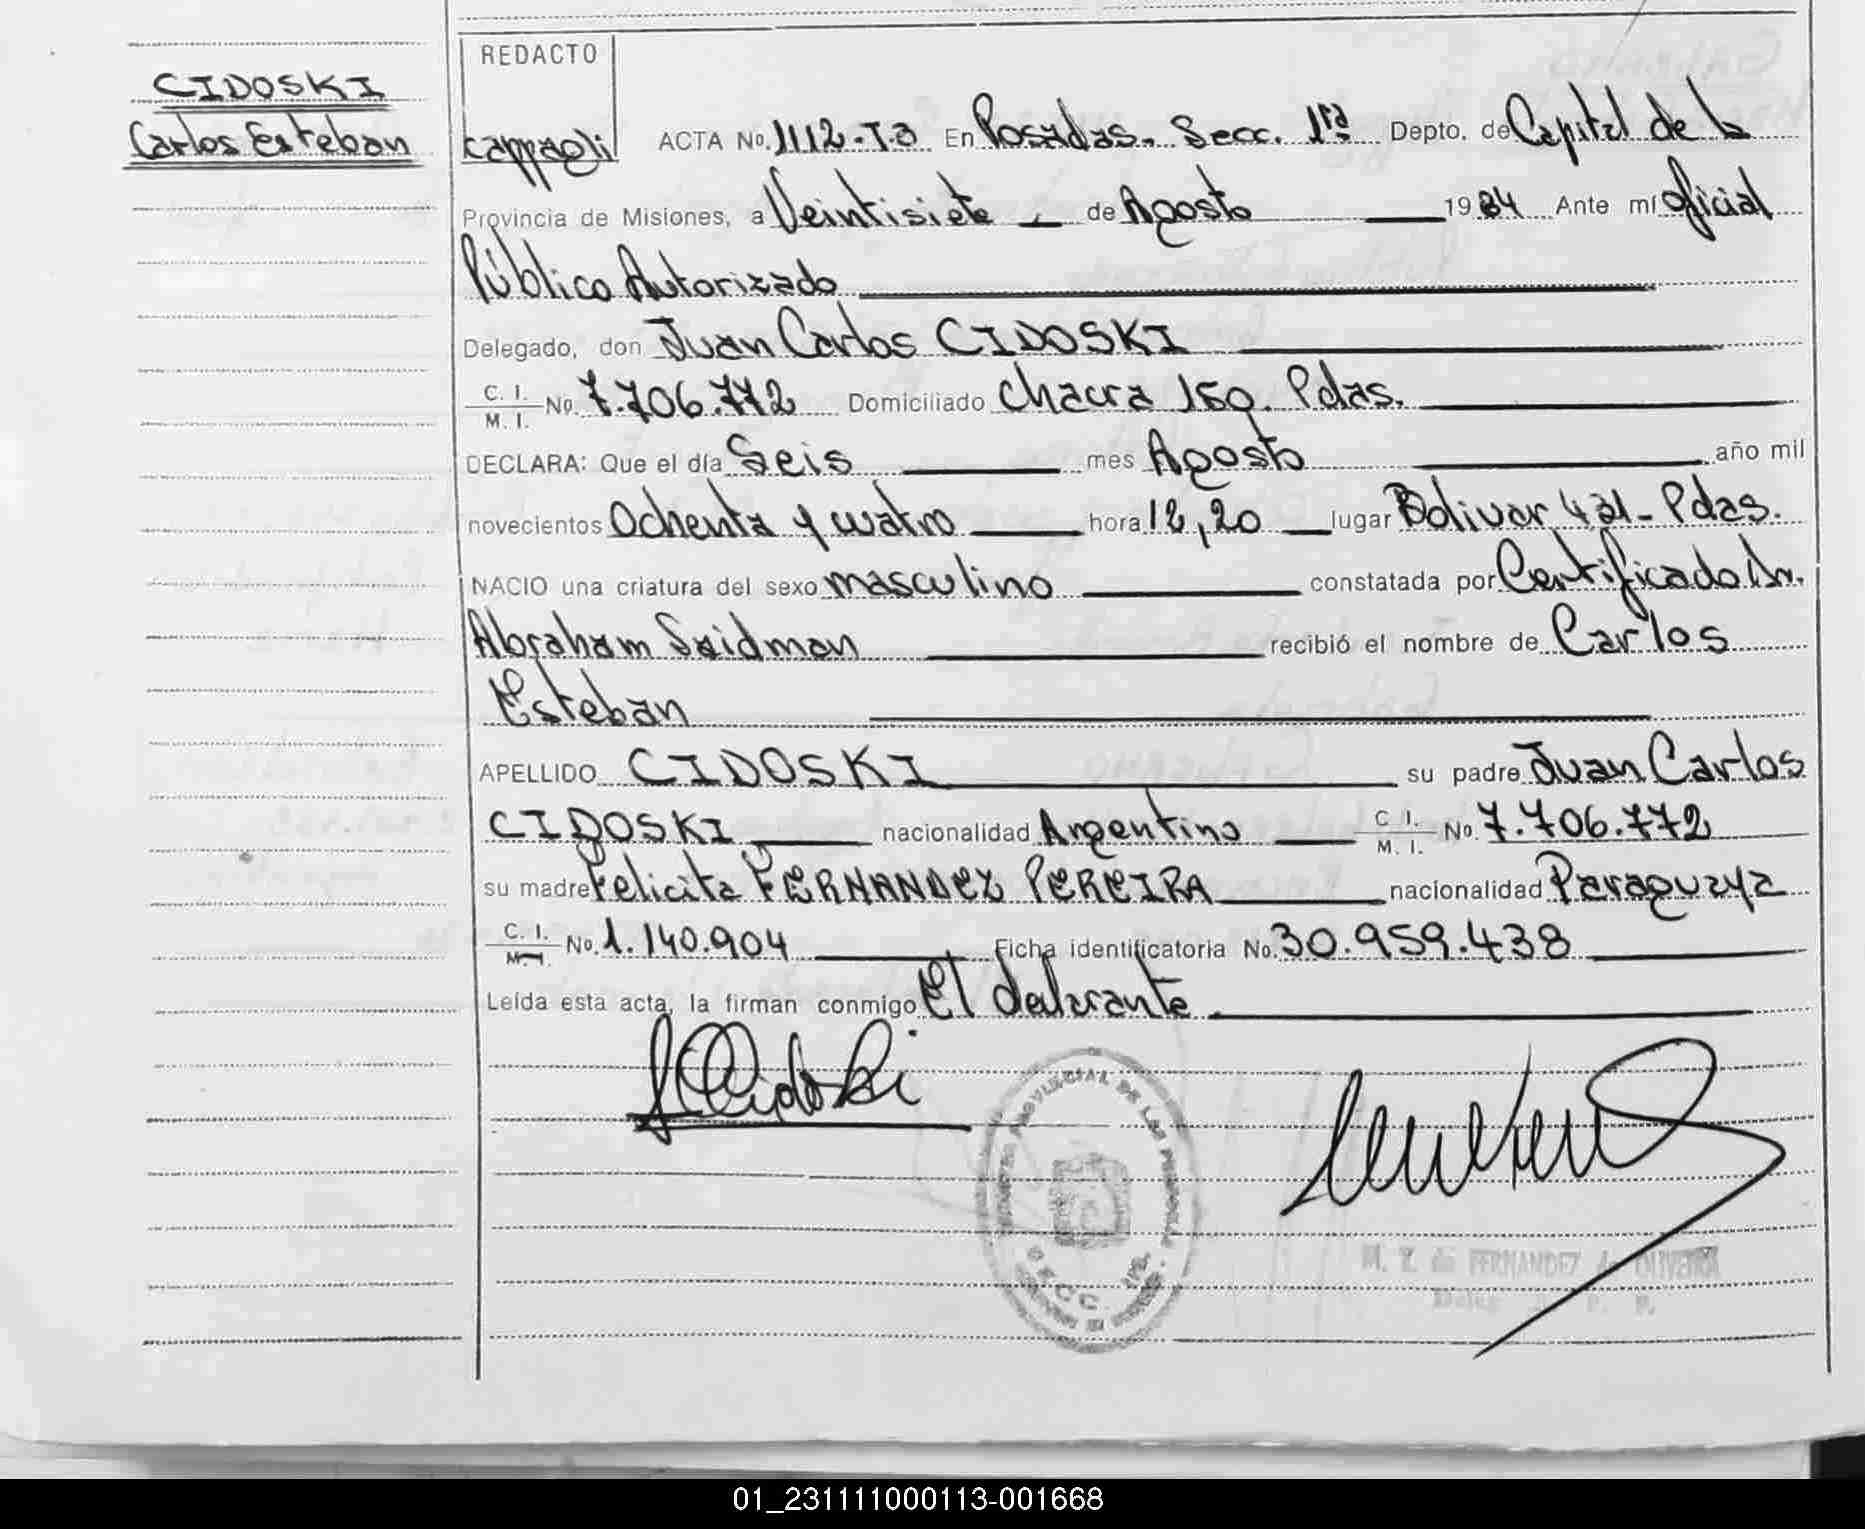 CIDOSKI
Carlos Esteban
REDACTO
ACTA No. 1112-T.3 En Posadas. Secc. 1ra. Depto. de Capital de la
Provincia de Misiones, a Veintisiete de Agosto 1984 Ante mí oficial
Público Autorizado
Delegado, don Juan Carlos CIDOSKI
C. I. M. I. No. 7.706.772 Domiciliado Chacra 150. Pdas.
DECLARA: Que el día Seis mes Agosto año mil
novecientos Ochenta y cuatro hora 12,20 lugar Bolivar 421- Pdas.
NACIO una criatura del sexo masculino constatada por Certificado Dr.
Abraham Saidman recibió el nombre de Carlos
Esteban
APELLIDO CIDOSKI su padre Juan Carlos
CIDOSKI nacionalidad Argentino C. I. M. I. No. 7.706.772
su madre Felicita FERNANDEZ PEREIRA nacionalidad Paraguaya
C. I. M. I. No. 1.140.904 Ficha identificatoria No. 30.959.438
Leída esta acta, la firman conmigo El declarante
Cidoski
PROVINCIAL DE LAS PERSONAS
M. de FERNANDEZ de OLIVEIRA
01_231111000113-001668